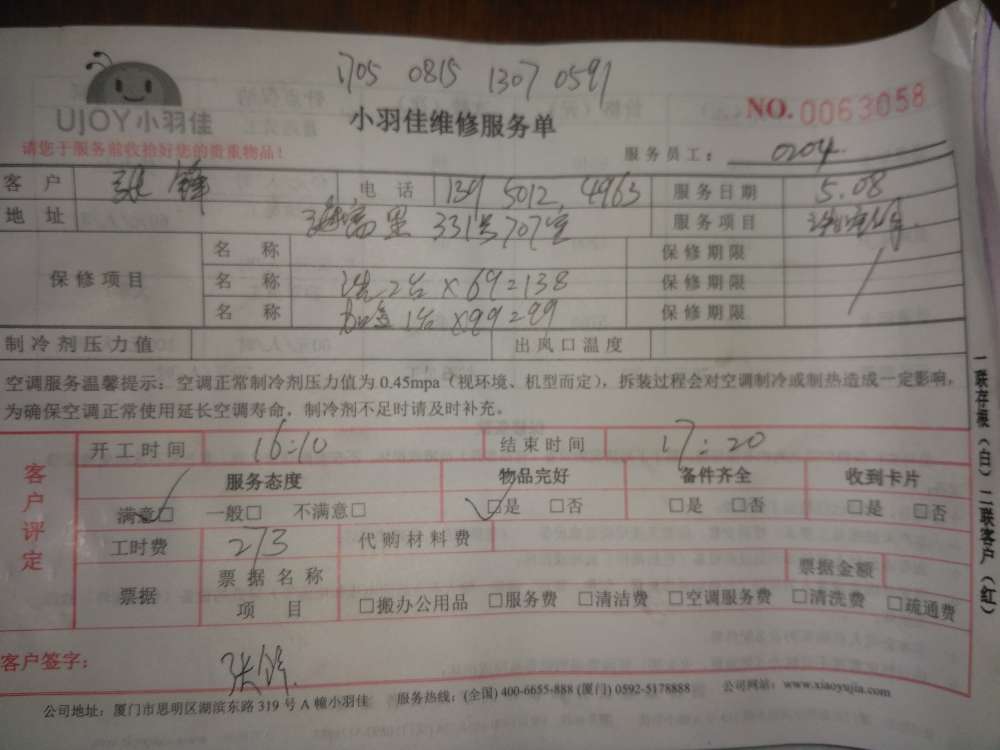 1705 0815 1307 0591
UJOY小羽佳
小羽佳维修服务单
NO.0063058
请您于服务前收拾好您的贵重物品！
服务员工： 0204
客 户 张锋 电 话 139 5012 4963 服务日期 5.08
地 址 331号707室 服务项目
保修项目 名 称 保修期限
名 称 洗2台×69=138 保修期限
名 称 加氟1台×99=99 保修期限
制冷剂压力值 出风口温度
空调服务温馨提示：空调正常制冷剂压力值为0.45mpa（视环境、机型而定），拆装过程会对空调制冷或制热造成一定影响，
为确保空调正常使用延长空调寿命，制冷剂不足时请及时补充。
客户评定
开工时间 16:10 结束时间 17:20
服务态度 物品完好 备件齐全 收到卡片
满意□ 一般□ 不满意□ □是 □否 □是 □否 □是 □否
工时费 273 代购材料费
票据 票据名称 票据金额
项 目 □搬办公用品 □服务费 □清洁费 □空调服务费 □清洗费 □疏通费
客户签字： 张锋
公司地址：厦门市思明区湖滨东路319号A幢小羽佳 服务热线：(全国) 400-6655-888 (厦门) 0592-5178888 公司网站：www.xiaoyujia.com
一联存根（白）二联客户（红）